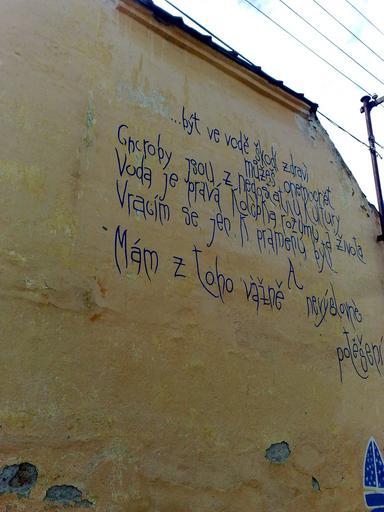 ...být ve vodě škodí zdraví
můžeš onemocnět
Choroby jsou z nedostatku kultury
Voda je pravá kolébka rozumu je
Vracím se jen k prameni života
A
Mám z toho vážně nevýslovné
potěšení